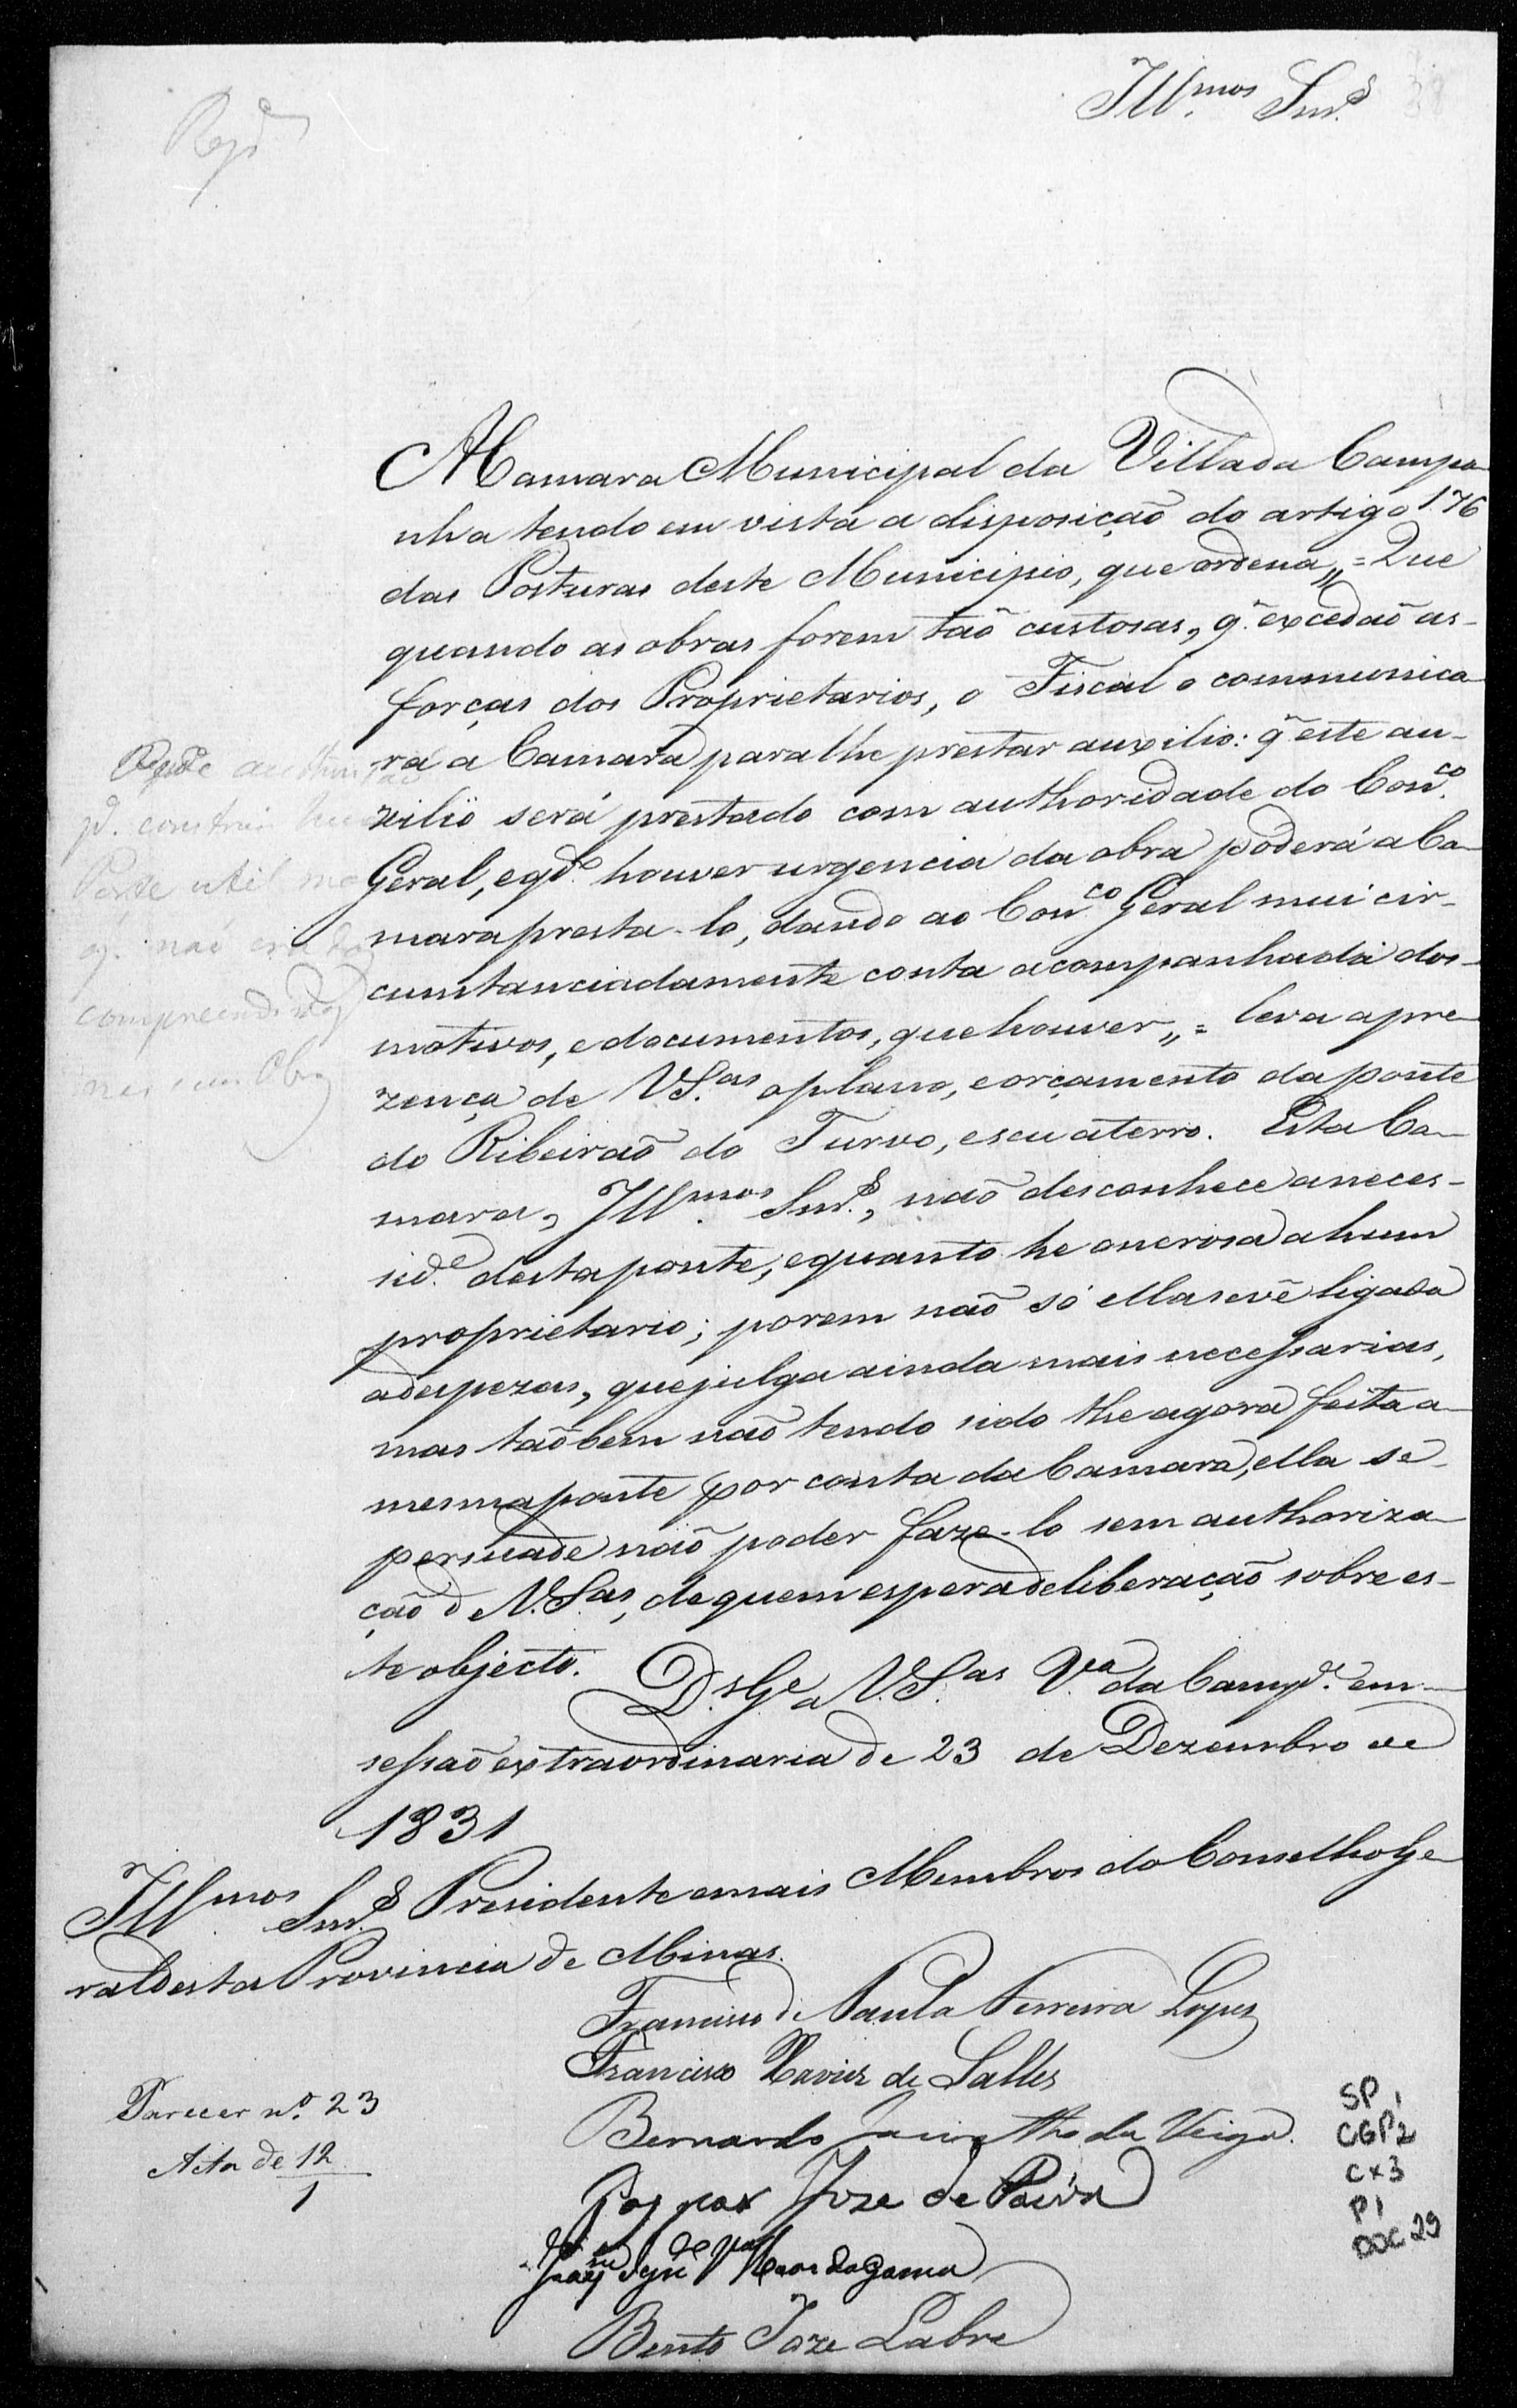 Ill.mos Snr.s
Regd
A Camara Municipal da Villa da Campa-
nha tendo em vista a disposição do artigo 176
das Posturas deste Municipio, que ordena „ = Que
quando as obras forem taõ custosas, q. excedaõ as-
forças dos Proprietarios, o Fiscal o communica-
rá a Camara para lhe prestar auxilio: q. este au-
xilio será prestado com authoridade do Con.co
Geral, e qd.o houver urgencia da obra poderá a Ca-
mara presta-lo, dando ao Con.co Geral mui cir-
cumtanciadamente conta acompanhada dos-
motivos, e documentos, que houver „ = leva a pre-
zença de VS.as o plano, e orçamento da ponte
do Ribeiraõ do Turvo, e seu aterro. Esta Ca-
mara, Ill.mos Snr.s, naõ desconhece a neces-
sid.e desta ponte, e quanto he onerosa a hum
proprietario; porem naõ só ella se vê ligada
a despezas, que julga ainda mais necessarias,
mas taõbem naõ tendo sido the agora feita a-
mesma ponte por conta da Camara, ella se-
persuade naõ poder faze-lo sem authoriza-
çaõ de V.S.as, de quem espera deliberaçaõ sobre es-
te objecto. D.s G.e a V.S.as V.a da Camp.a em-
sessaõ extraordinaria de 23 de Dezembro de
1831
Ill.mos Snr.s Presidente e mais Membros do Conselho Ge-
ral desta Provincia de Minas.
Francisco de Paula Ferreira Lopes
Francisco Xavier de Salles
Bernardo Jacintho da Veiga.
Gaspar Jose de Paiva
da Gama
Bento Joze Labre
pª. construir
Ponte util
q. naõ
compreendida
nas suas Obras
Parecer n.o 23
Acta de 12
1
SP 1
CGP2
CX3
P1
DOC 29